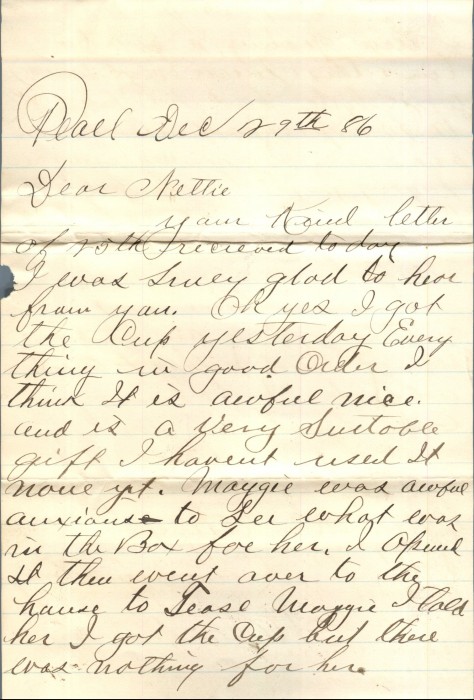 Pearl Dec 29th 86
Dear Nettie
your Kind letter
of 25th I recieved today
I was surey glad to hear
from you. Oh yes I got
the Cup yesterday Every
thing in good Order I
think It is awful nice.
and is a Very Suitable
gift I havent used It
none yt. Maggie was awful
anxious to See what was
in the Box for her, I opened
It then went over to the
house to Tease Maggie I told
her I got the Cup but there
was nothing for her